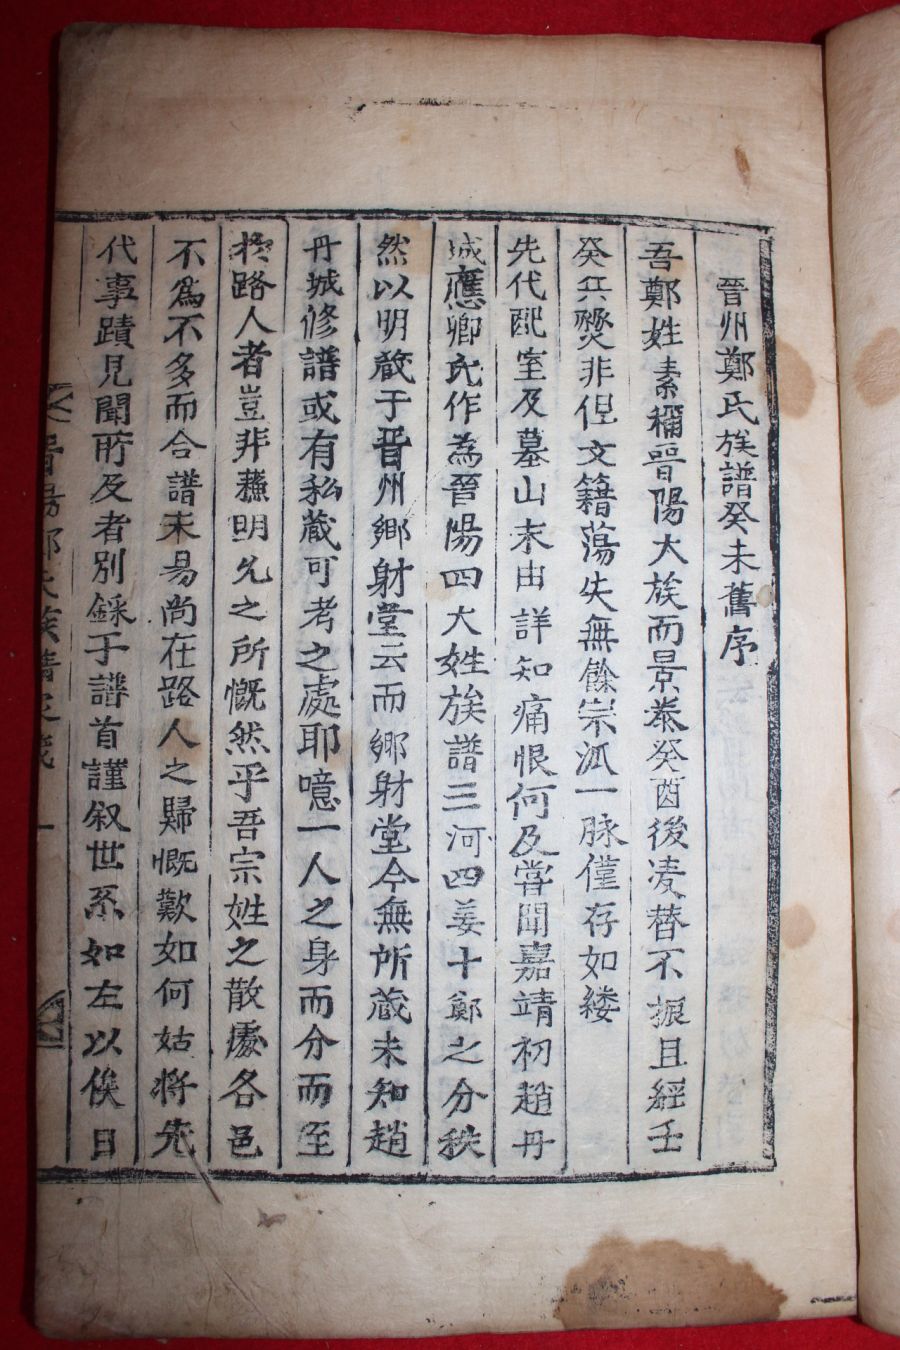 晉州鄭氏族譜癸未舊序
吾鄭姓素稱晋陽大族而景泰癸酉後凌替不振且經壬
癸兵燹非但文籍蕩失無餘宗派一脉僅存如縷
先代配室及墓山末由詳知痛恨何及甞聞嘉靖初趙丹
城應卿氏作為晉陽四大姓族譜三河四姜十鄭之分秩
然以明藏于晋州鄉射堂云而鄉射堂今無所蔵未知趙
丹城修譜或有私蔵可考之處耶噫一人之身而分而至
於路人者豈非蘓明允之所慨然乎吾宗姓之散處各邑
不爲不多而合譜未易尚在路人之歸慨歎如何姑將先
代事蹟見聞所及者別録于譜首謹叙世系如左以俟日
晋陽鄭氏族譜 一